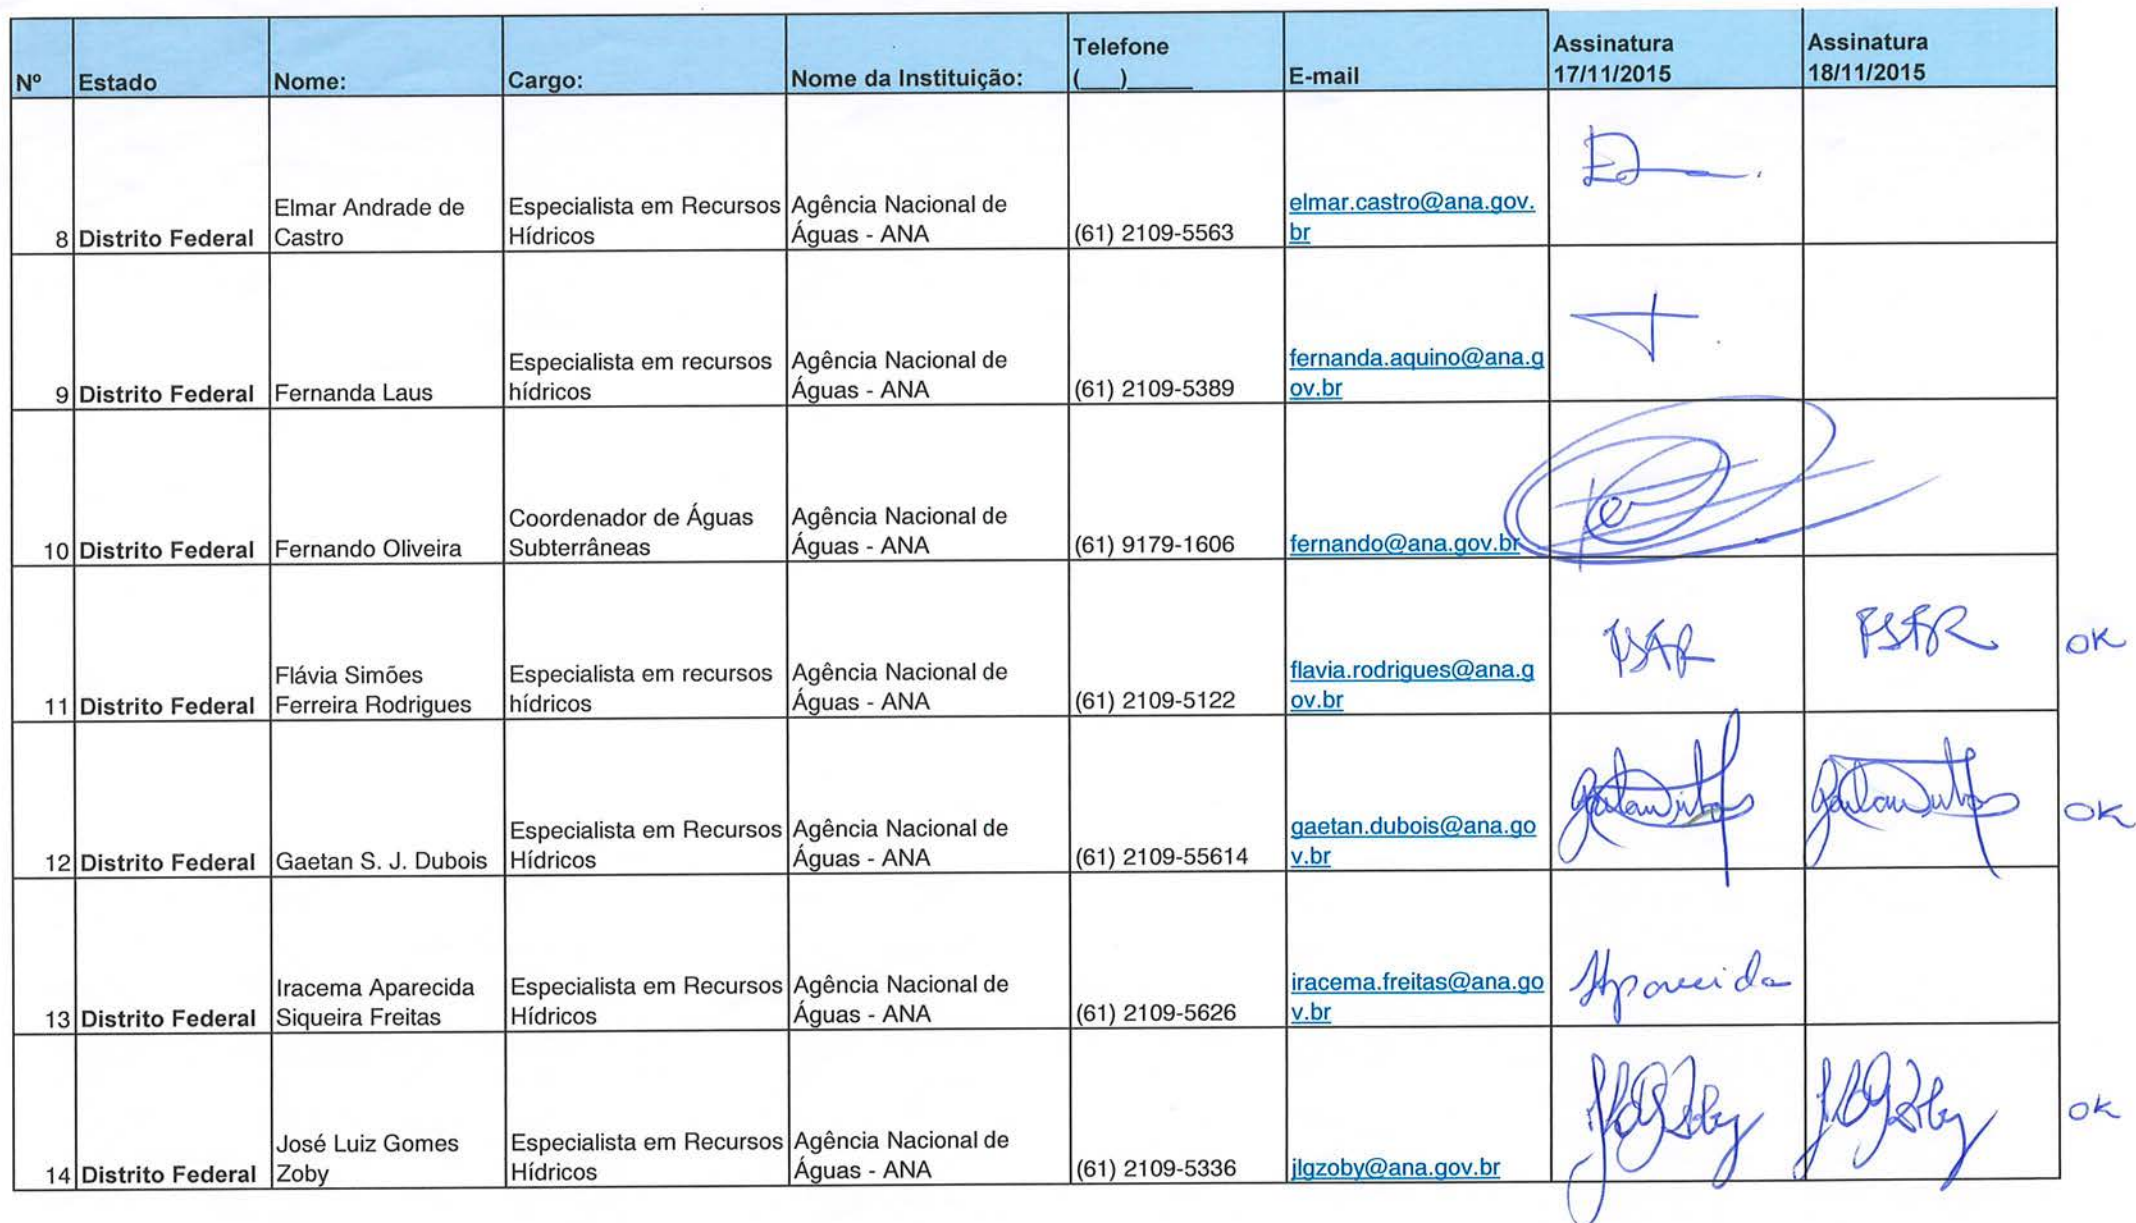 Nº Estado Nome: Cargo: Nome da Instituição: Telefone (___)_____ E-mail Assinatura 17/11/2015 Assinatura 18/11/2015
8 Distrito Federal Elmar Andrade de Castro Especialista em Recursos Hídricos Agência Nacional de Águas - ANA (61) 2109-5563 elmar.castro@ana.gov.br
9 Distrito Federal Fernanda Laus Especialista em recursos hídricos Agência Nacional de Águas - ANA (61) 2109-5389 fernanda.aquino@ana.gov.br
10 Distrito Federal Fernando Oliveira Coordenador de Águas Subterrâneas Agência Nacional de Águas - ANA (61) 9179-1606 fernando@ana.gov.br
11 Distrito Federal Flávia Simões Ferreira Rodrigues Especialista em recursos hídricos Agência Nacional de Águas - ANA (61) 2109-5122 flavia.rodrigues@ana.gov.br FSFR FSFR OK
12 Distrito Federal Gaetan S. J. Dubois Especialista em Recursos Hídricos Agência Nacional de Águas - ANA (61) 2109-55614 gaetan.dubois@ana.gov.br OK
13 Distrito Federal Iracema Aparecida Siqueira Freitas Especialista em Recursos Hídricos Agência Nacional de Águas - ANA (61) 2109-5626 iracema.freitas@ana.gov.br Aparecida
14 Distrito Federal José Luiz Gomes Zoby Especialista em Recursos Hídricos Agência Nacional de Águas - ANA (61) 2109-5336 jlgzoby@ana.gov.br JLGZoby JLGZoby OK